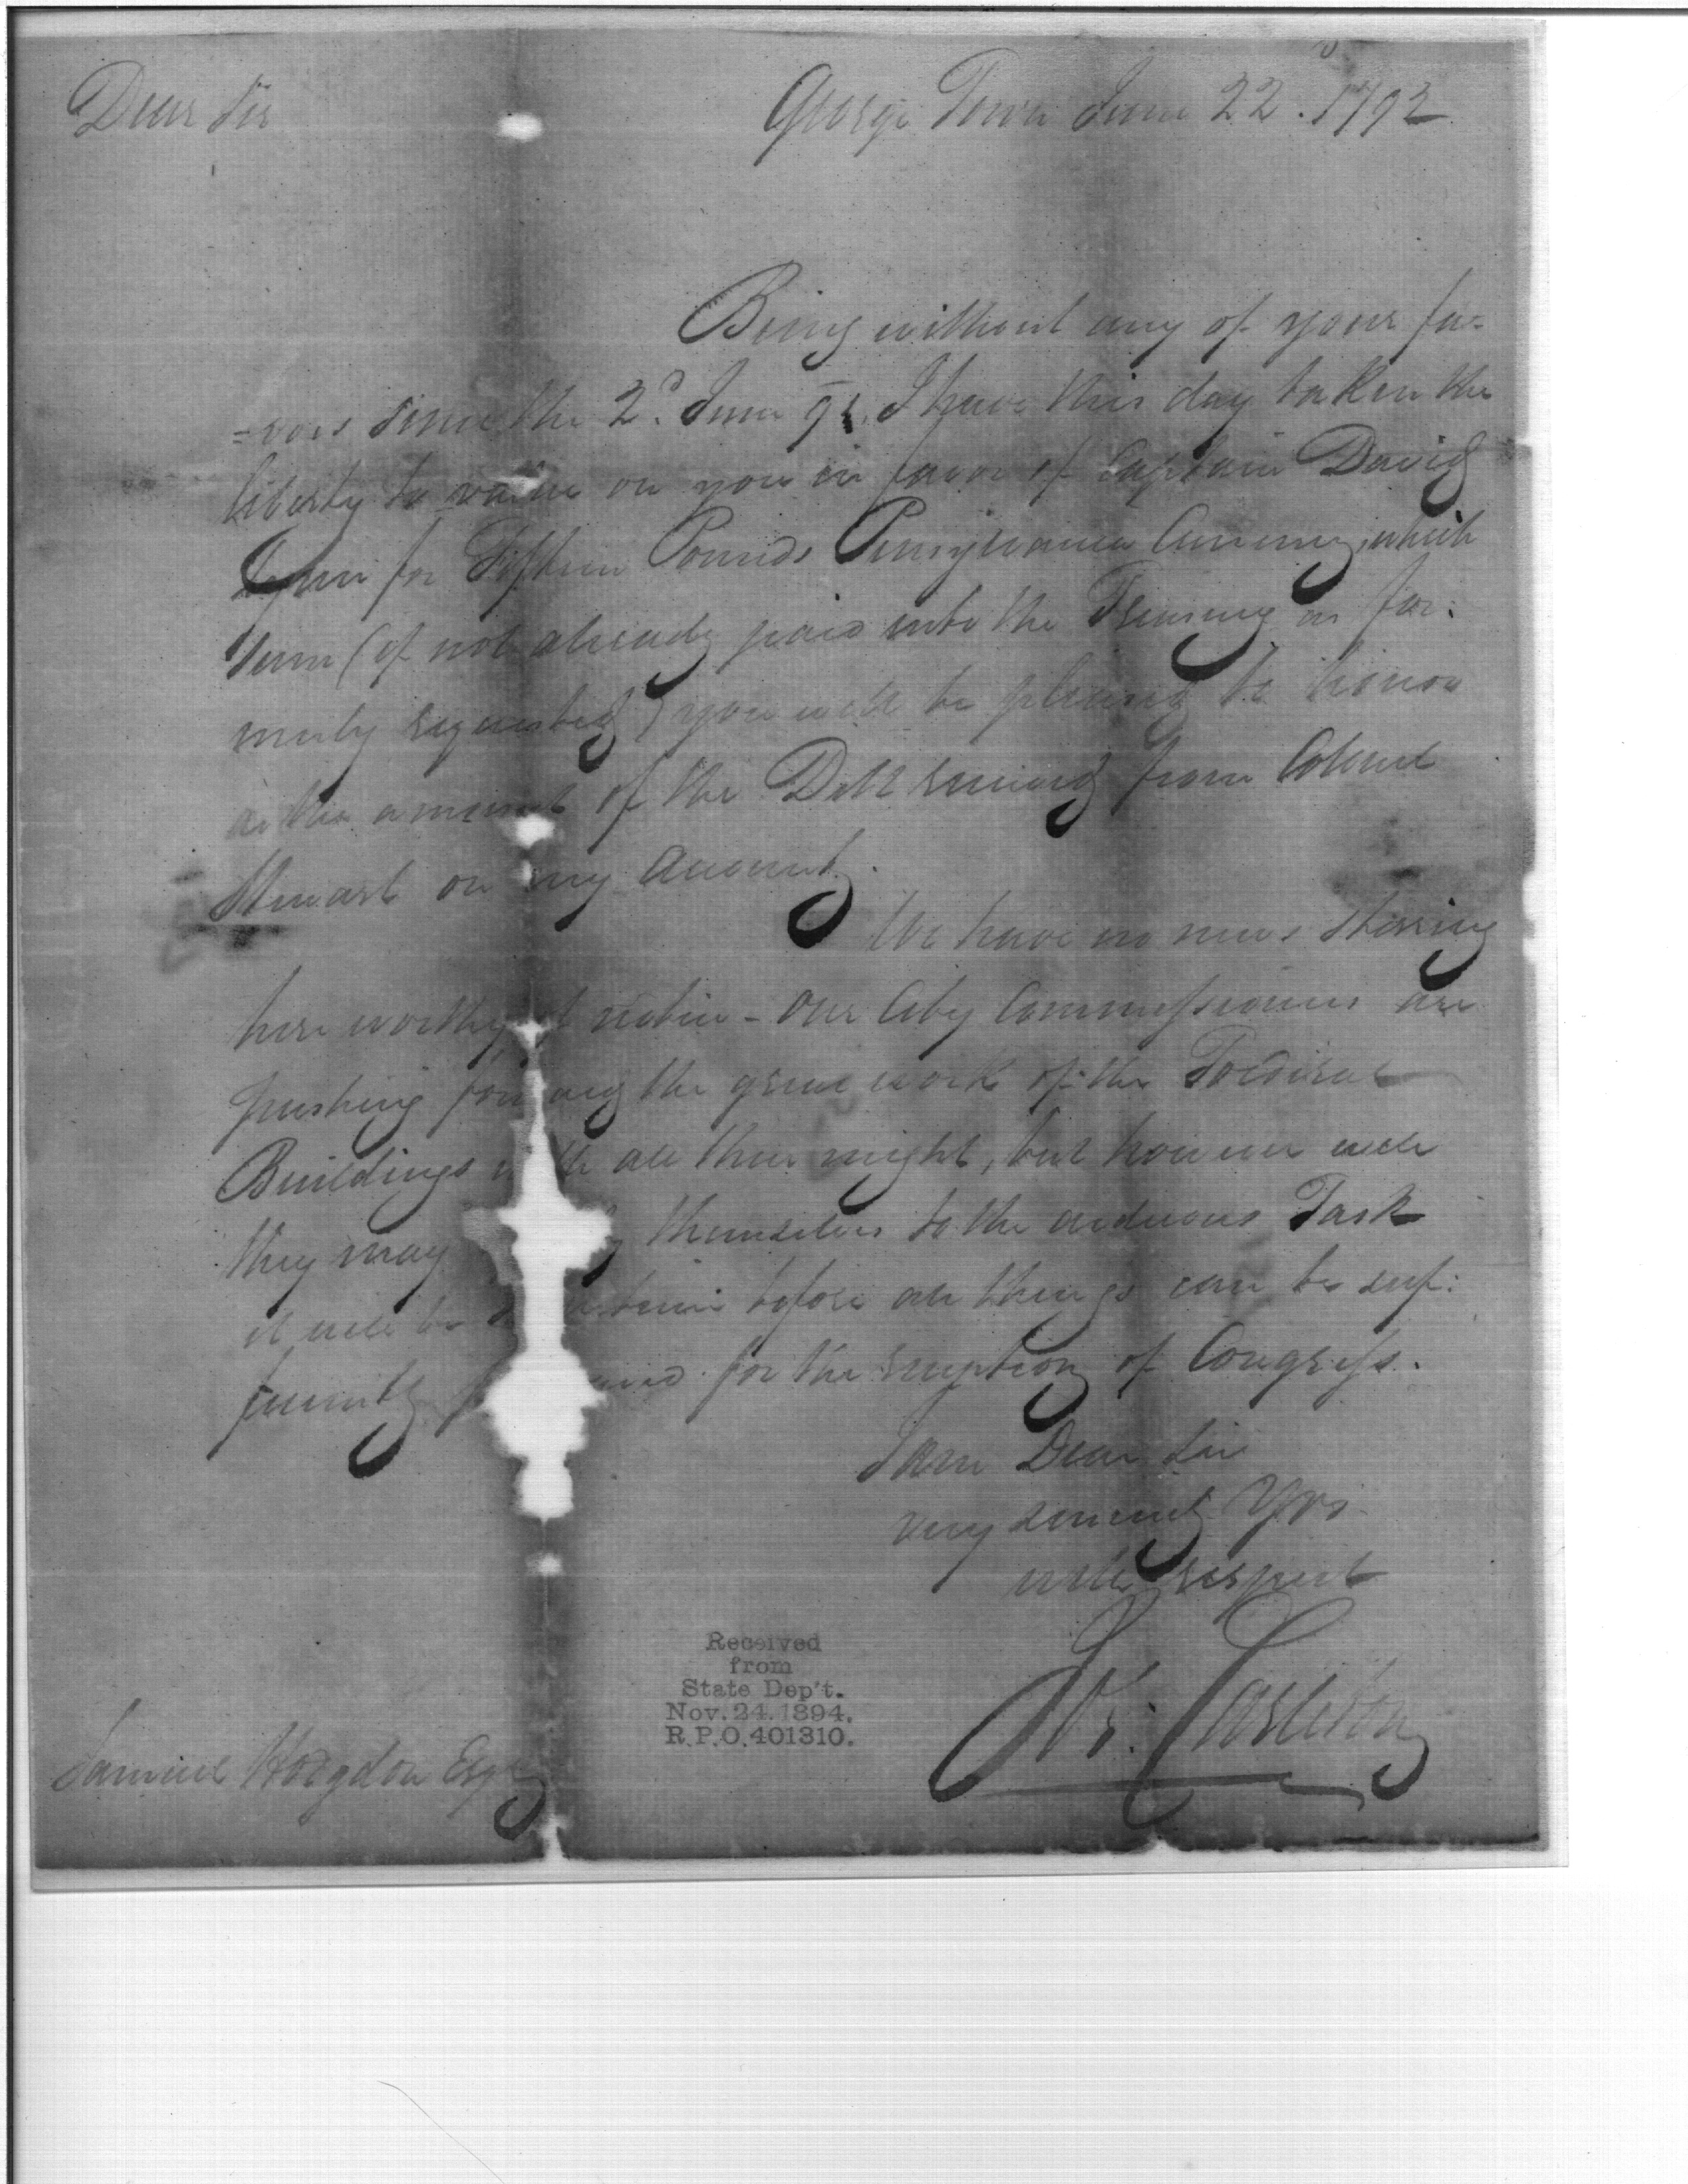 Dear Sir
George Town June 22d. 1792
Being without any of your fa=
=vors since the 2d. June 91. I have this day taken the
liberty to value on you in favor of Captain David
Lynn for Fifteen Pounds Pensylvania Currency, which
Sum (if not already paid into the Treasury as for:
merly requested) you will be pleased to honor
as the amount of the Debt received from Colonel
Stewart on my Account.
We have no news stirring
here worthy of notice - Our City Commissioners are
pushing forward the great work of the Foederal
Buildings with all their might, but however well
they may themselves to the arduous Task
it will be time before all things can be suf:
ficiently for the reception of Congress.
I am Dear Sir
very sincerely Yrs.
with respect
Jos: Carleton
Samuel Hodgdon Esqr
Received
from
State Dep't.
Nov. 24. 1894.
R.P.O. 401310.